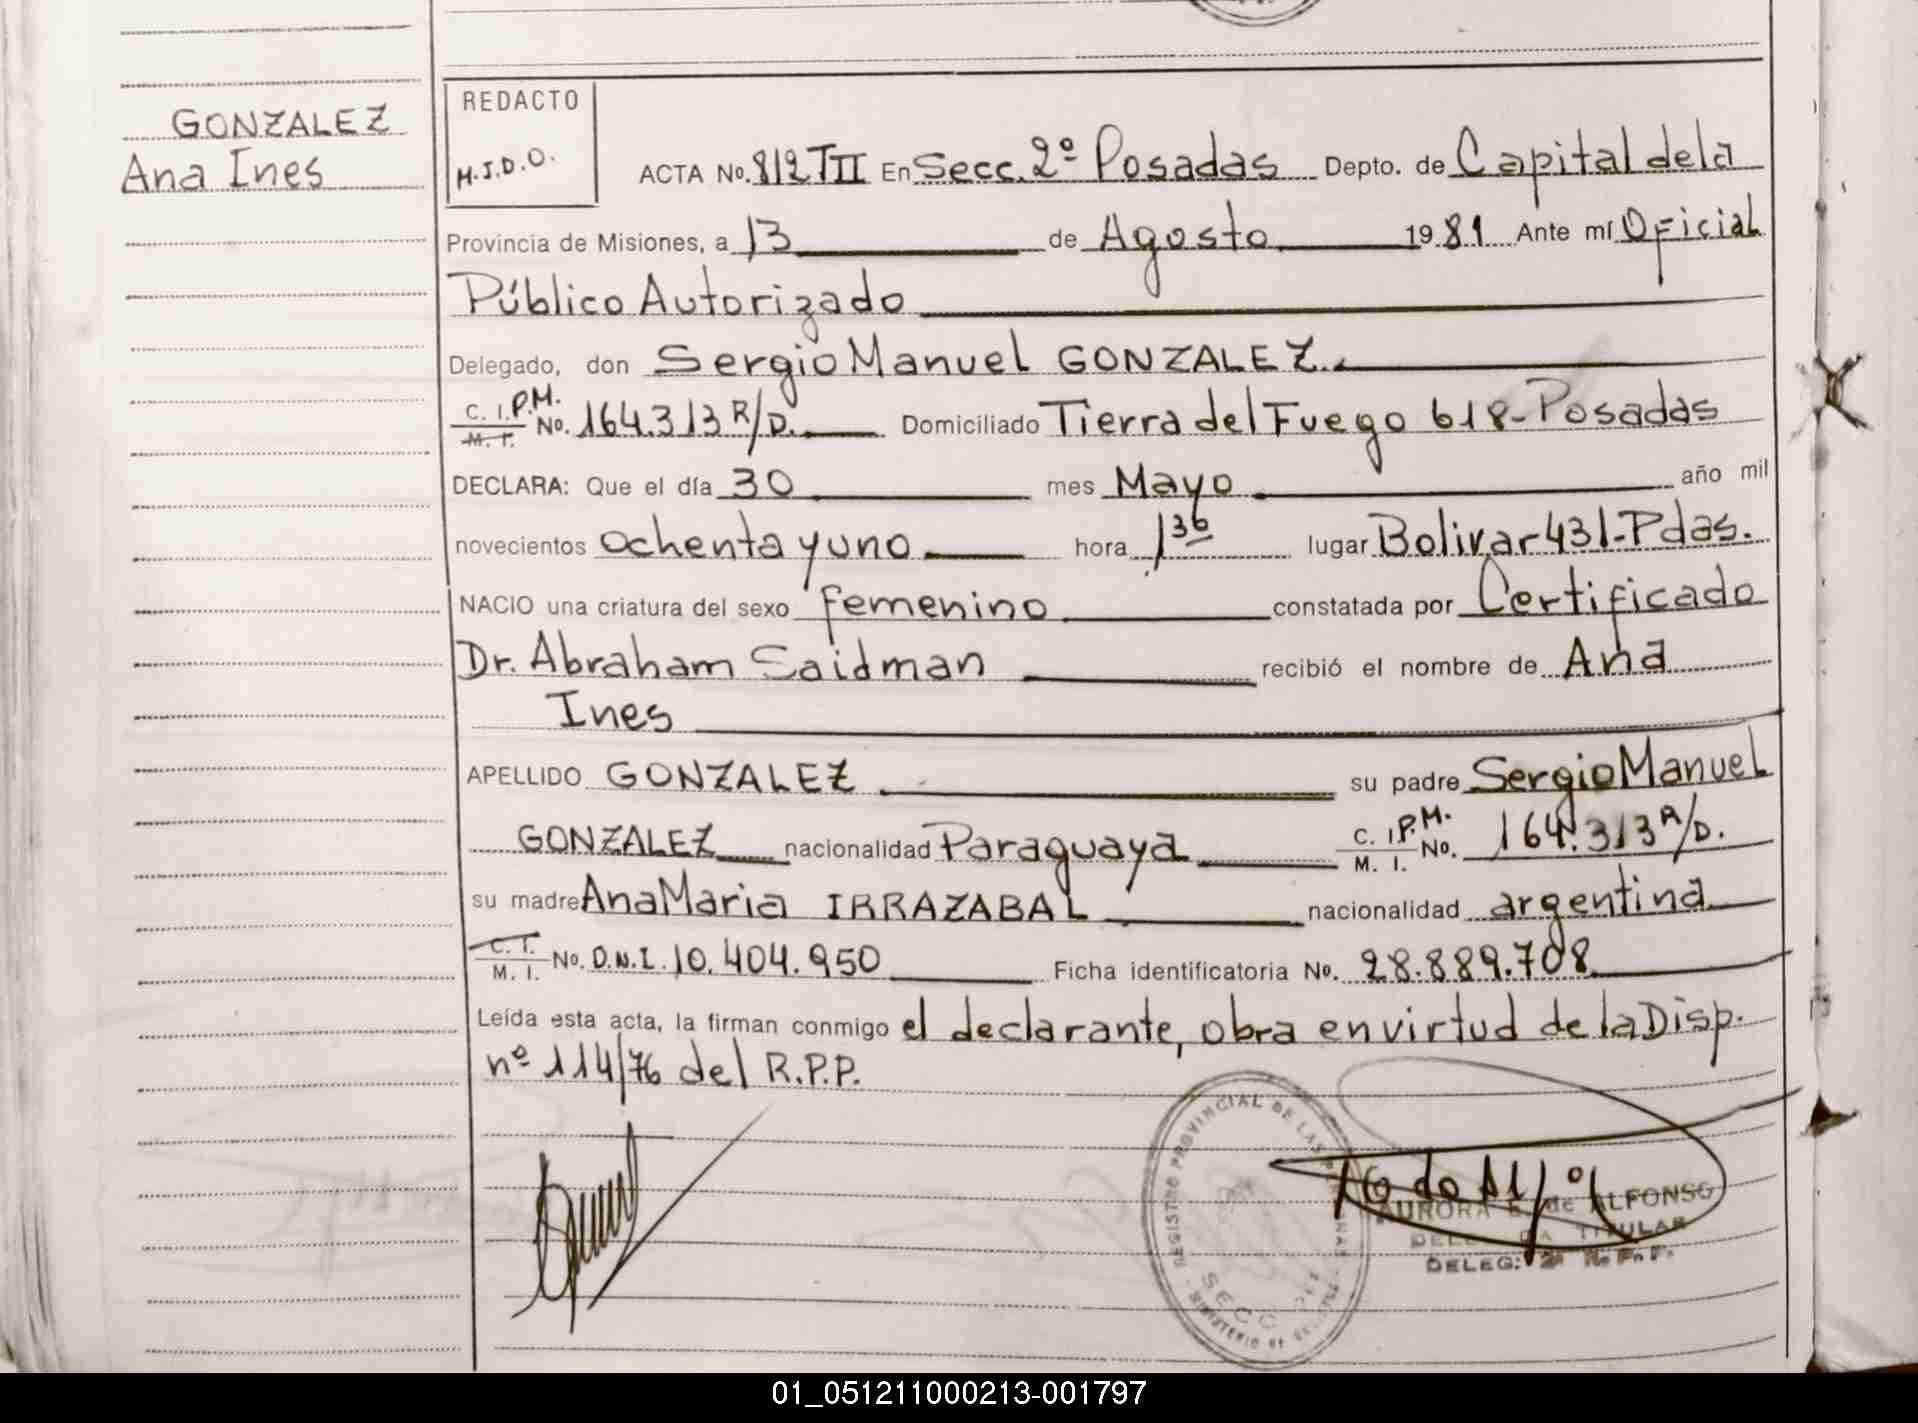 GONZALEZ
Ana Ines
REDACTO
M.J.D.O.
ACTA No. 812 TII En Secc. 2º Posadas Depto. de Capital de la
Provincia de Misiones, a 13 de Agosto 1981 Ante mí Oficial
Público Autorizado
Delegado, don Sergio Manuel GONZALEZ.
C. I.P.M.
M. I. No. 164.313 R/D. Domiciliado Tierra del Fuego 618-Posadas
DECLARA: Que el día 30 mes Mayo año mil
novecientos ochenta y uno hora 1 30 lugar Bolivar 431-Pdas.
NACIO una criatura del sexo femenino constatada por Certificado
Dr. Abraham Saidman recibió el nombre de Ana
Ines
APELLIDO GONZALEZ su padre Sergio Manuel
GONZALEZ nacionalidad Paraguaya C. I.P.M. M. I. No. 164.313 R/D.
su madre Ana Maria IRRAZABAL nacionalidad argentina
C. I. M. I. No. D.N.I. 10.404.950 Ficha identificatoria No. 28.889.708
Leída esta acta, la firman conmigo el declarante, obra en virtud de la Disp.
nº 114/76 del R.P.P.
REGISTRO PROVINCIAL DE LAS PERSONAS
SECC
MINISTERIO DE
AURORA de ALFONSO
TITULAR
DELEG: 2ª R.P.P.
01_051211000213-001797